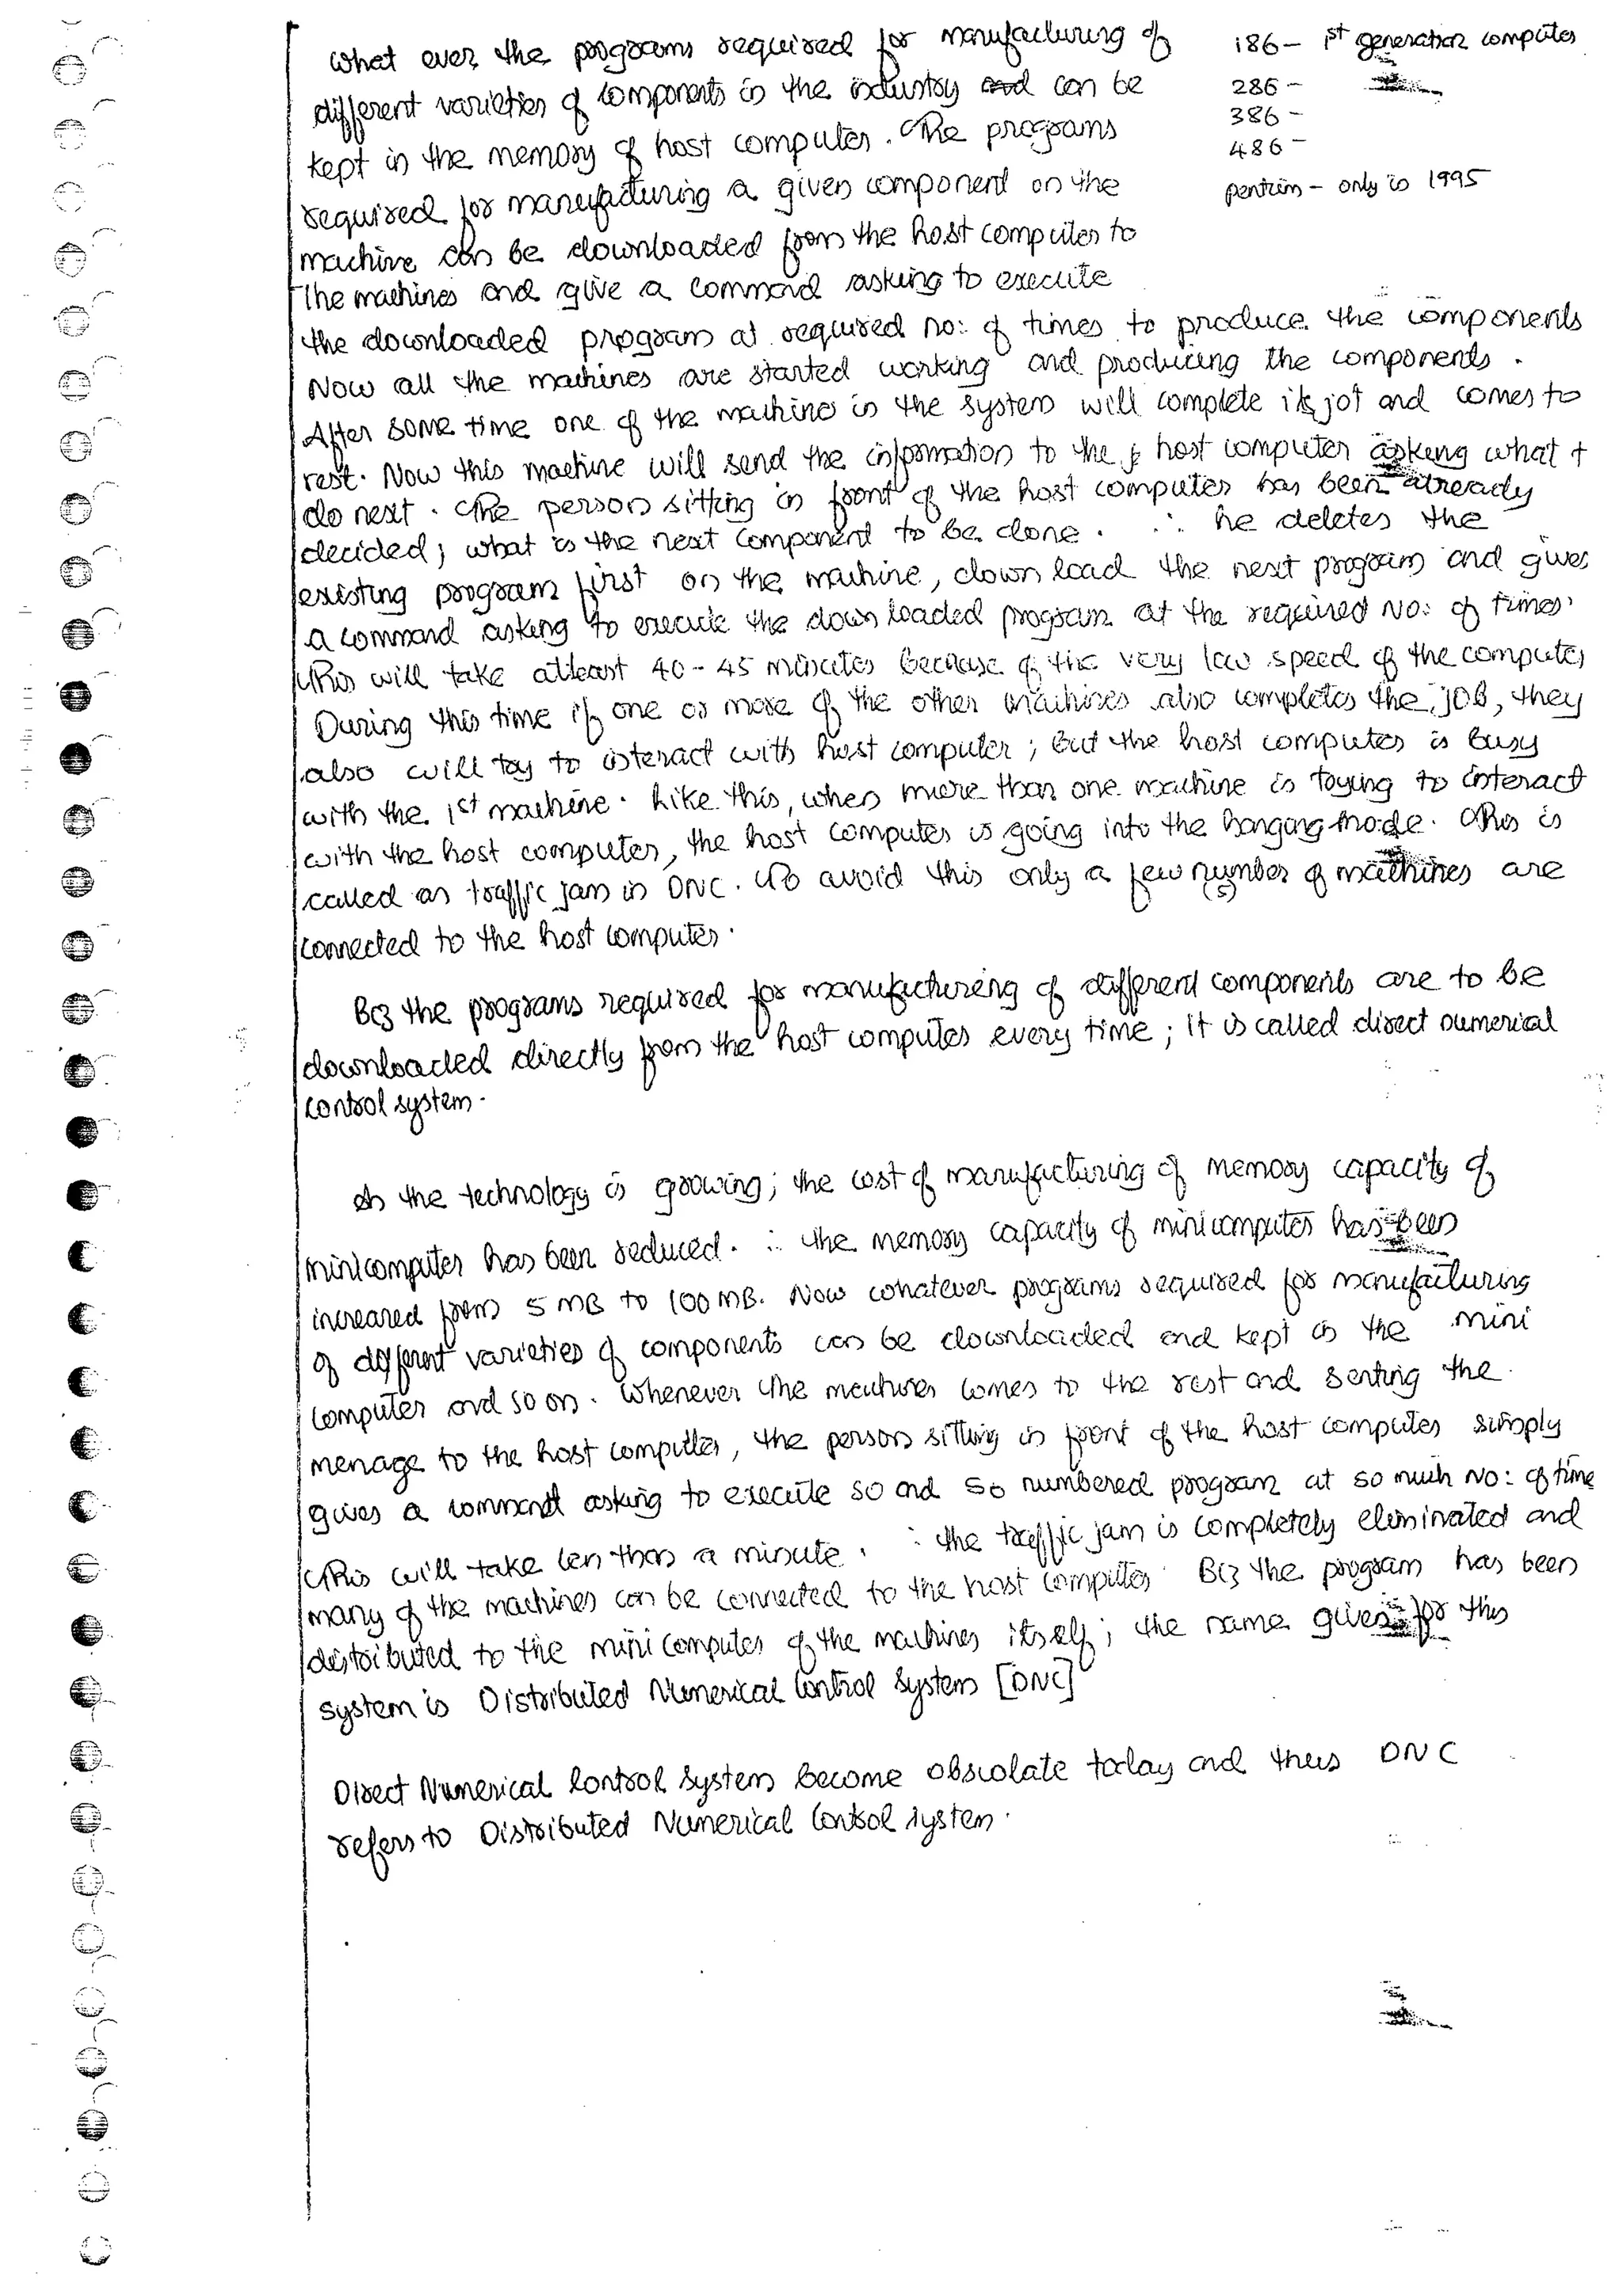 What ever the programs required for manufacturing of
different varieties of components in the industry and can be
kept in the memory of host computer. The programs
required for manufacturing a given component on the
machine can be downloaded from the host computer to
the machines and give a command asking to execute
186 - 1st generation computer
286 -
386 -
486 -
pentium - only in 1995
the downloaded program at required no: of times to produce the components
Now all the machines are started working and producing the components.
After some time one of the machine in the system will complete its jot and comes to
rest. Now this machine will send the information to the host computer asking what t
do next. The person sitting in front of the host computer has been already
decided; what is the next component to be done. ∴ he deletes the
existing program first on the machine, down load the next program and gives
a command asking to execute the down loaded program at the required no: of times.
This will take atleast 40 - 45 minutes because of the very low speed of the computer
During this time if one or more of the other machines also completes the job, they
also will try to interact with host computer; but the host computer is busy
with the 1st machine. Like this, when more than one machine is trying to interact
with the host computer, the host computer is going into the hanging mode. This is
called as traffic jam in DNC. To avoid this only a few number of machines are
(5)
connected to the host computer.
Bcz the programs required for manufacturing of different components are to be
downloaded directly from the host computer every time; it is called direct numerical
control system.
As the technology is growing; the cost of manufacturing of memory capacity of
minicomputer has been reduced. ∴ the memory capacity of minicomputer has been
increared from 5 MB to 100 MB. Now whatever programs required for manufacturing
of different varieties of components can be downloaded and kept in the mini
computer and so on. Whenever the machines comes to the rest and senting the
menage to the host computer, the person sitting in front of the host computer simply
gives a command asking to execute so and so numbered program at so much no: of time
This will take len than a minute. ∴ the traffic jam is completely eliminated and
many of the machines can be connected to the host computer. Bcz the program has been
distributed to the mini computer of the machines itself; the name given for this
system is Distributed Numerical Control System [DNC]
Direct Numerical Control System become obsolate today and thus DNC
refers to Distributed Numerical Control system.